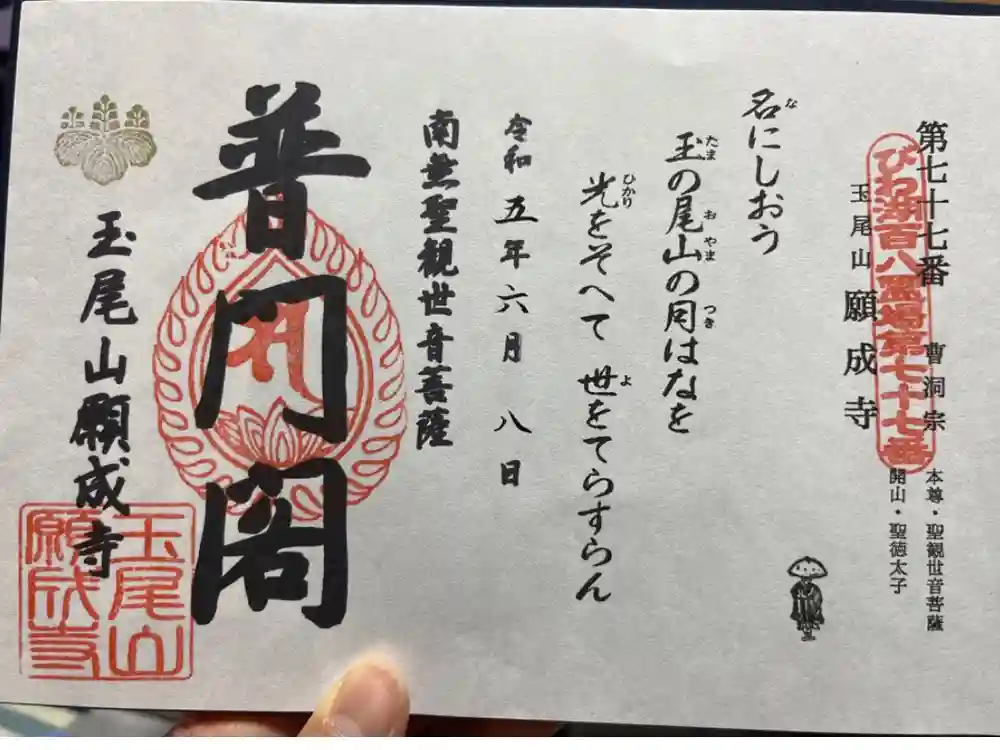 第七十七番 曹洞宗 本尊・聖観世音菩薩
びわ湖百八霊場第七十七番
玉尾山 願成寺 開山・聖徳太子
名にしおう
な
玉の尾山の月はなを
たま お やま つき
光をそへて 世をてらすらん
ひかり よ
令和五年六月八日
南無聖観世音菩薩
普門閣
玉尾山願成寺
玉尾山
願成寺